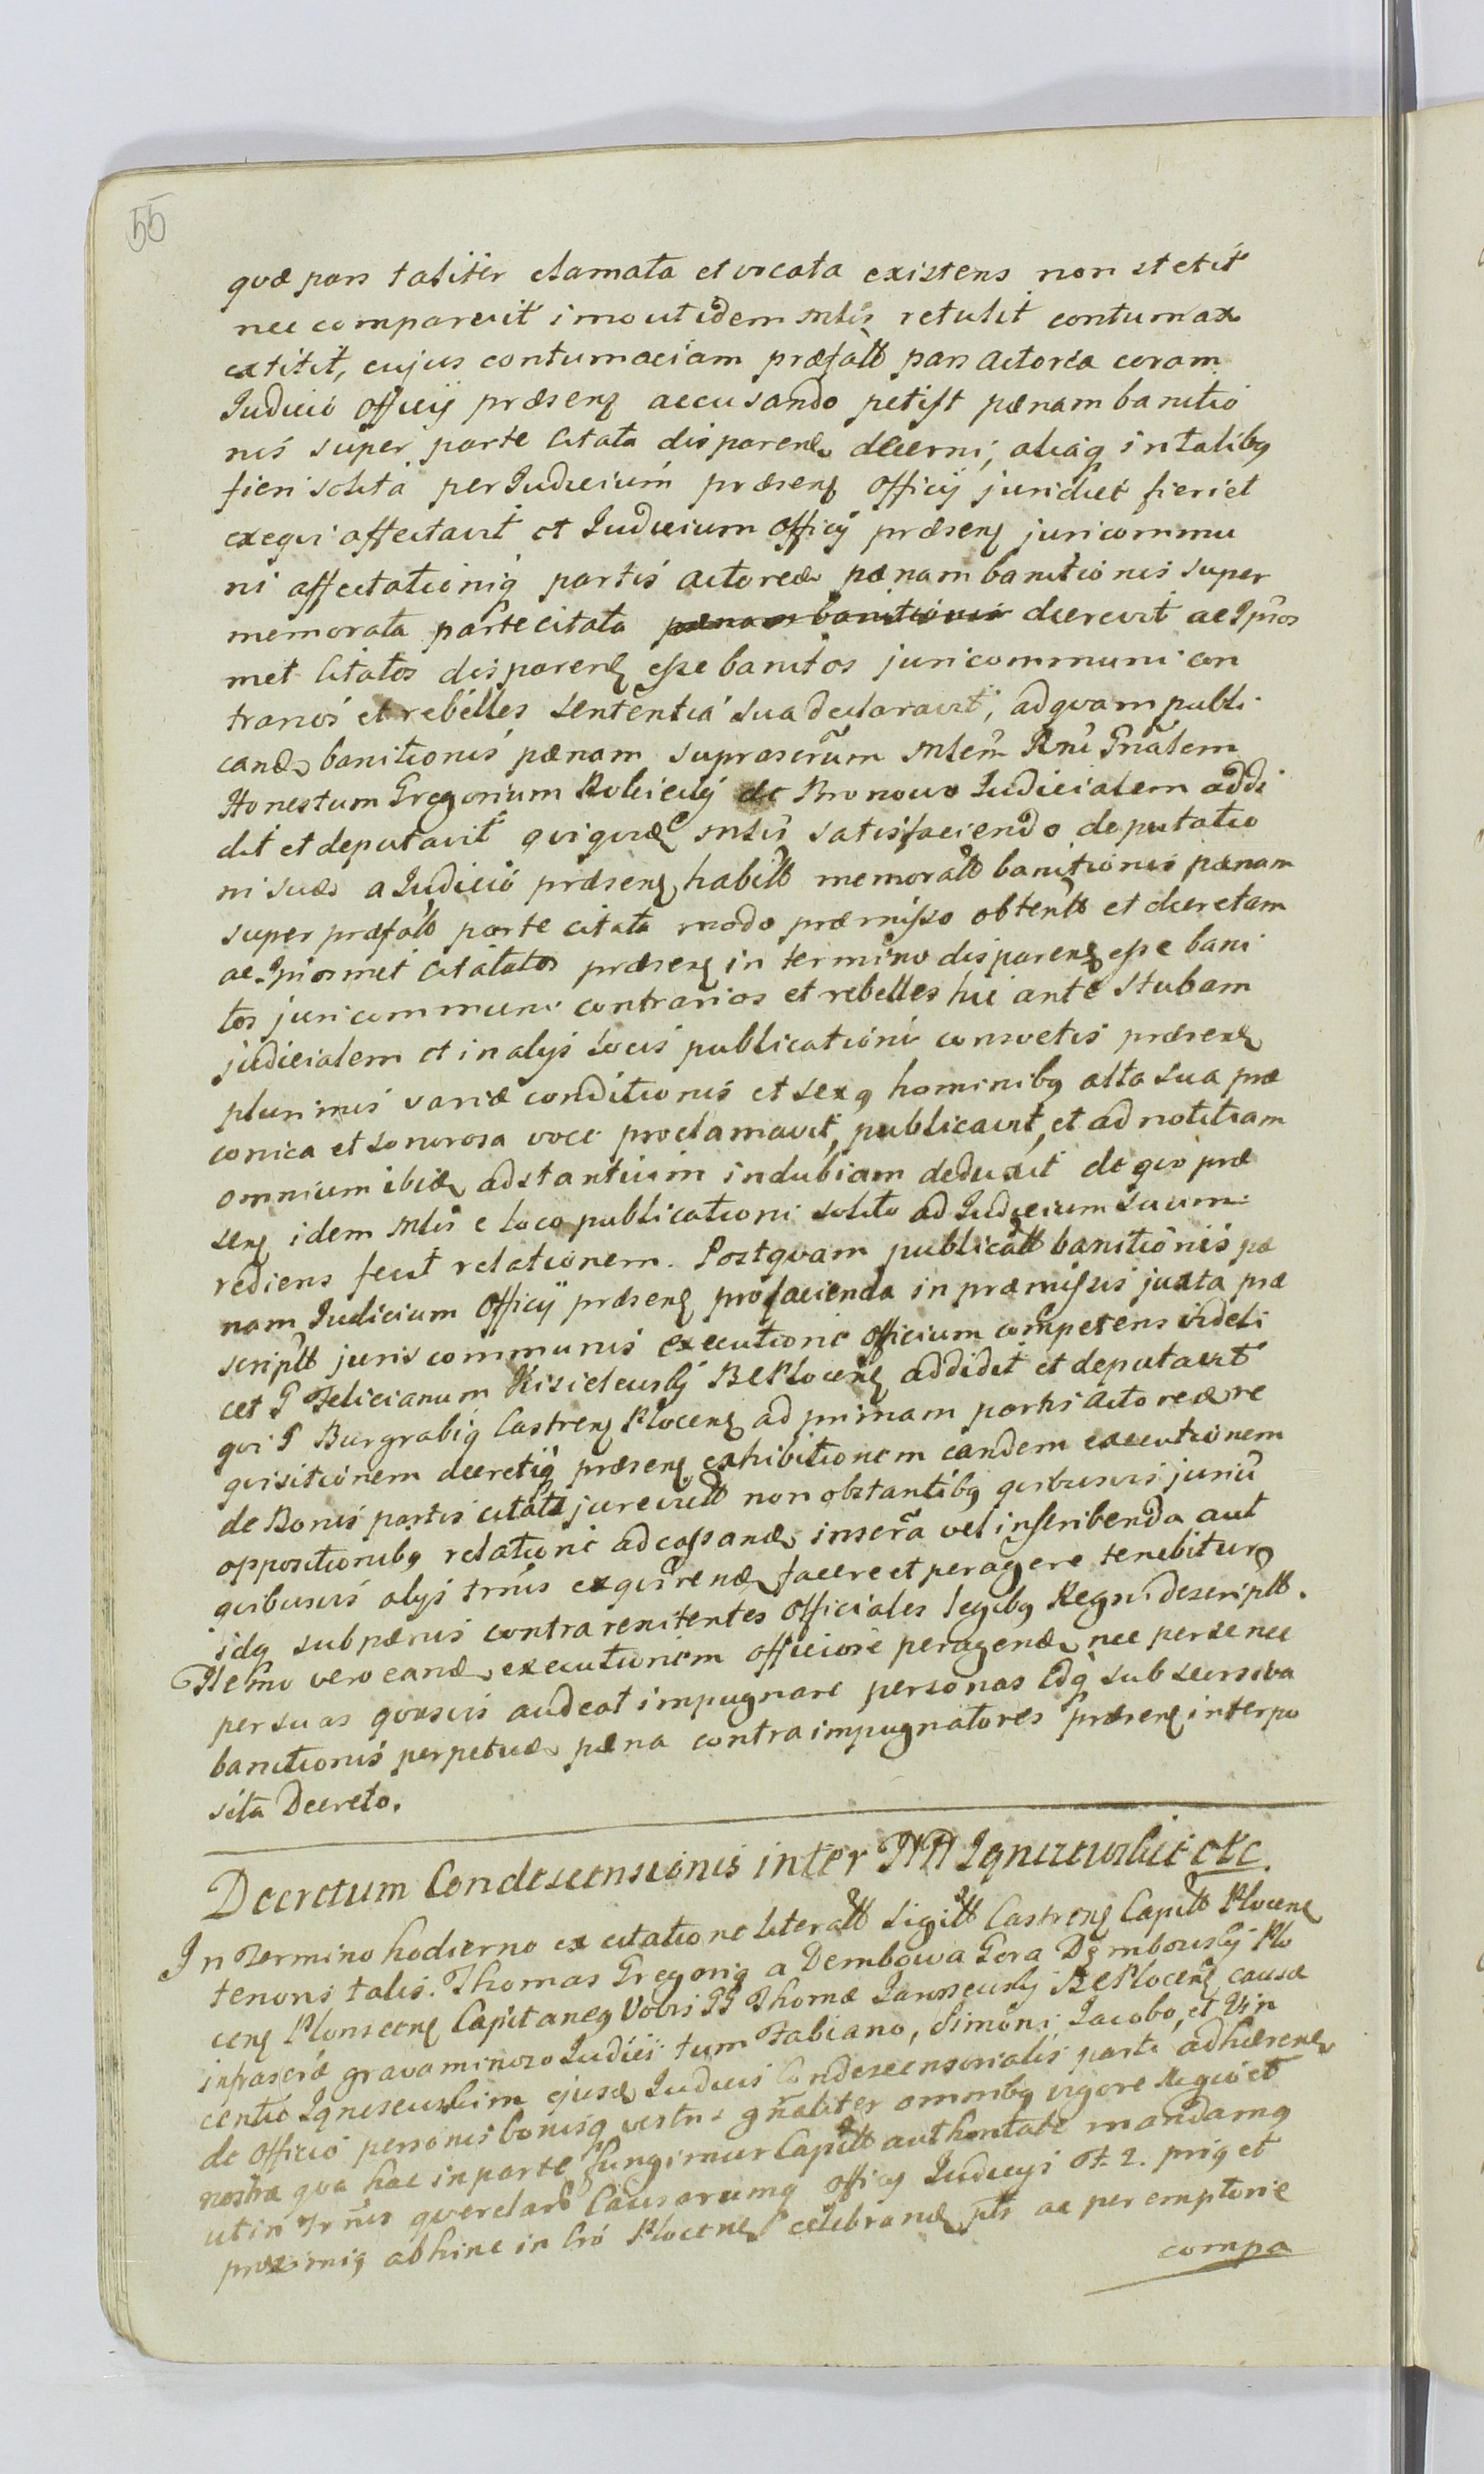 55
quæ pars taliter clamata et vocata existens non stetit
nec comparuit imo ut idem mlis retulit contumax
extitit, cujus contumaciam præfatt pars actorea coram
Iudicio Officij præsenq accusando petijt pænam banitio
nis super parte citata disparenq decerni, aliaq in talibq
fieri solita per Iudicium præsenq Officij juridicè fieri et
exeqvi affectavit et Iudicium Officij præsenq juri commu
ni affectationiq partis actoreæ pænam banitionis super
memorata parte citata pænam banitionis decrevit ac Ipsos
met citatos disparenq esse banitos juri communi con
trarios et rebelles sententia sua declaravit, ad qvam publi
candæ banitionis pænam suprascrum mlem Rni Gnalem
Honestum Gregorium Rolicky de Bronowo Iudicialem addi
dit et deputavit qviqvid mlis satisfaciendo deputatio
ni suæ a Iudicio præsenq habitt memoratt banitionis pænam
super præfatt parte citata modo præmisso obtentt et decretam
ac Ipsosmet citatos præsenq in termino disparenq esse bani
tos juri communi contrarios et rebelles hic ante stubam
judicialem et in alijs locis publicationi consvetis præsenq
plurimis variæ conditionis et sexq hominibq alta sua præ
conica et sonorosa voce proclamavit, publicavit, et ad notitiam
omnium ibiq adstantium indubiam deduxit de qvo præ
senq idem mlis e loco publicationi solito ad Iudicium suum
rediens fecit relationem. Postqvam publicatt banitionis pæ
nam Iudicium Officij præsenq pro facienda in præmissis juxta præ
scriptt juris communis executione Officium competens videli
cet G Felicianum Kisielewsky BCPlocenq addidit et deputavit
qvi G Burgrabiq Castrenq Plocenq ad primam partis actoreæ re
qvisitionem decretiq præsenq exhibitionem eandem executionem
de Bonis partis citatt jurevictt non obstantibq qvibusvis juriu
oppositionibq relatione ad cassandq inscra vel inscribenda aut
qvibusvis alijs trnis exqvirenq facere et peragere tenebitur
idq sub pænis contra renitentes Officiales legibq Regni descriptt.
Nemo vero eandq executionem officiose peragendq nec per se nec
per suas qvasvis audeat impugnare personas Idq sub secursiva
banitionis perpetuæ pæna contra impugnatores præsenq interpo
sita Decreto.
Decretum Condescensionis inter NN Ignizewskie etc.
In Termino hodierno ex citatione literatt Sigitt Castrenq Capitt Plocenq
tenoris talis. Thomas Gregoriq a Dembowa Gora Dęmbowsky Plo
cenq Plonscenq Capitaneq Vobis GG Thomæ Jaroszewsky BCPlocenq causæ
infrascræ gravaminozo Iudici tum Fabiano, Simoni, Jacobo, et Vin
centio Igniszewskim ejusdq Iudicis Condescensorialis parti adhærenq
de Officio personis bonisq vestris gnaliter omnibq vigore Regio et
nostra qva hac in parte fungimur Capitt authoritate mandamq
ut in Trnis qverelarū Causarumq Officij Iudicijs Ft. 2. priq et
proximiq abhinc in Cro Plocenq celebrandq pts ac peremptorie
compa